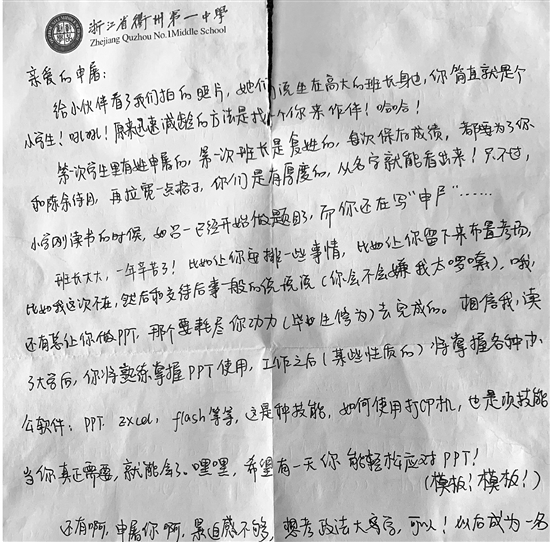 浙江省衢州第一中学
Zhejiang Quzhou No.1 Middle School
亲爱的申屠:
给小伙伴看了我们拍的照片,她们说坐在高大的班长身边,你简直就是个
小学生!吼吼!原来迅速减龄的方法是找个你来作伴!哈哈!
第一次学生里有姓申屠的,第一次班长是复姓的,每次保存成绩,都要为了你
和陈余待月,再拉宽一点格子,你们是有厚度的,从名字就能看出来!只不过,
小学刚读书的时候,如吕一已经开始做题目了,而你还在写“申尸”……
班长大大,一年辛苦了!比如让你安排一些事情,比如让你留下来布置考场,
比如我这次不在,然后和交待后事一般的说说说(你会不会嫌我太啰嗦)。哦,
还有总让你做PPT,那个要耗尽你功力(毕生修为)去完成的。相信我,读
了大学后,你将熟练掌握PPT使用,工作之后(某些性质的)将掌握各种办
公软件:PPT. excel, flash等等,这是种技能,如何使用打印机,也是项技能
当你真正需要,就能会了。嘿嘿,希望有一天你能轻松应对PPT!
(模板!模板!)
还有啊,申屠你啊,紧迫感不够,想考政法大学,可以!以后成为一名